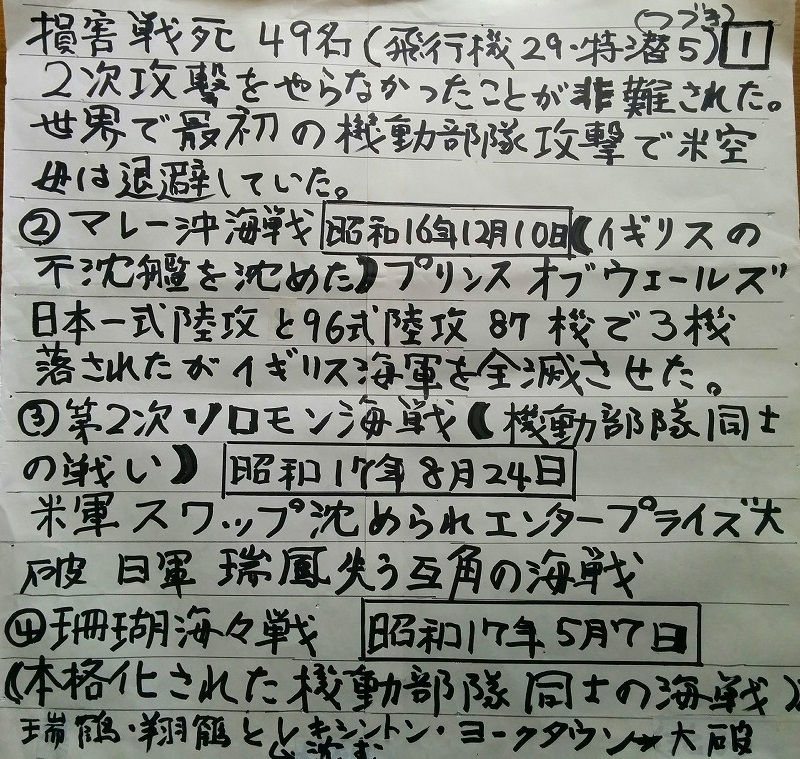 (つづき)
損害戦死 49名(飛行機29・特潜5) 1
2次攻撃をやらなかったことが非難された。
世界で最初の機動部隊攻撃で米空
母は退避していた。
②マレー沖海戦 昭和16年12月10日(イギリスの
不沈艦を沈めた)プリンス オブウェールズ
日本一式陸攻と96式陸攻 87機で3機
落されたがイギリス海軍を全滅させた。
③第2次ソロモン海戦(機動部隊同士
の戦い) 昭和17年8月24日
米軍スワップ沈められエンタープライズ大
破 日軍 瑞鳳失う互角の海戦
④珊瑚海々戦 昭和17年5月7日
(本格化された機動部隊同士の海戦)
瑞鶴・翔鶴とレキシントン・ヨークタウン→大破
沈む